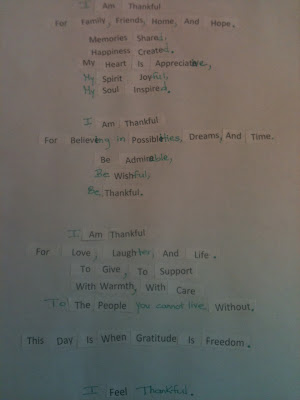 I Am Thankful
For Family, Friends, Home, And Hope.
Memories Shared,
Happiness Created.
My Heart Is Appreciative,
My Spirit Joyful,
My Soul Inspired.
I Am Thankful
For Believing in Possibilities, Dreams, And Time.
Be Admirable,
Be Wishful,
Be Thankful.
I Am Thankful
For Love, Laughter, And Life.
To Give, To Support
With Warmth, With Care
To The People you cannot live Without.
This Day Is When Gratitude Is Freedom.
I Feel Thankful.